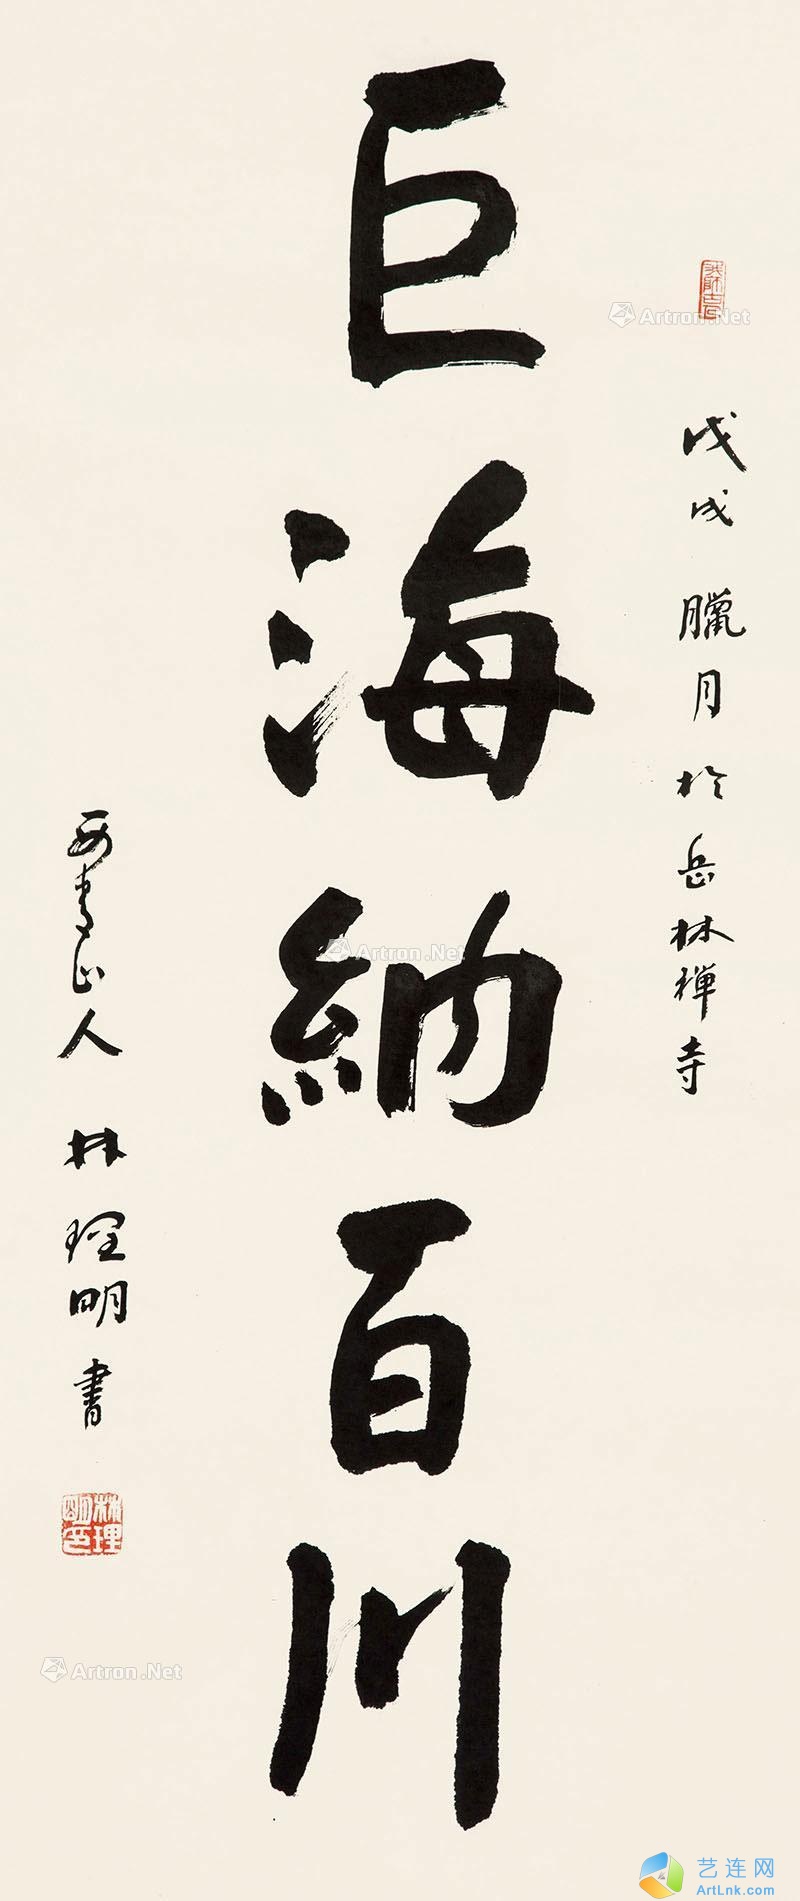 戊戌 臘月 於岳林禪寺
巨海納百川
山人 林理明 書
林理明印
Artron.Net
Artron.Net
Artron.Net
艺连网
ArtLnk.com